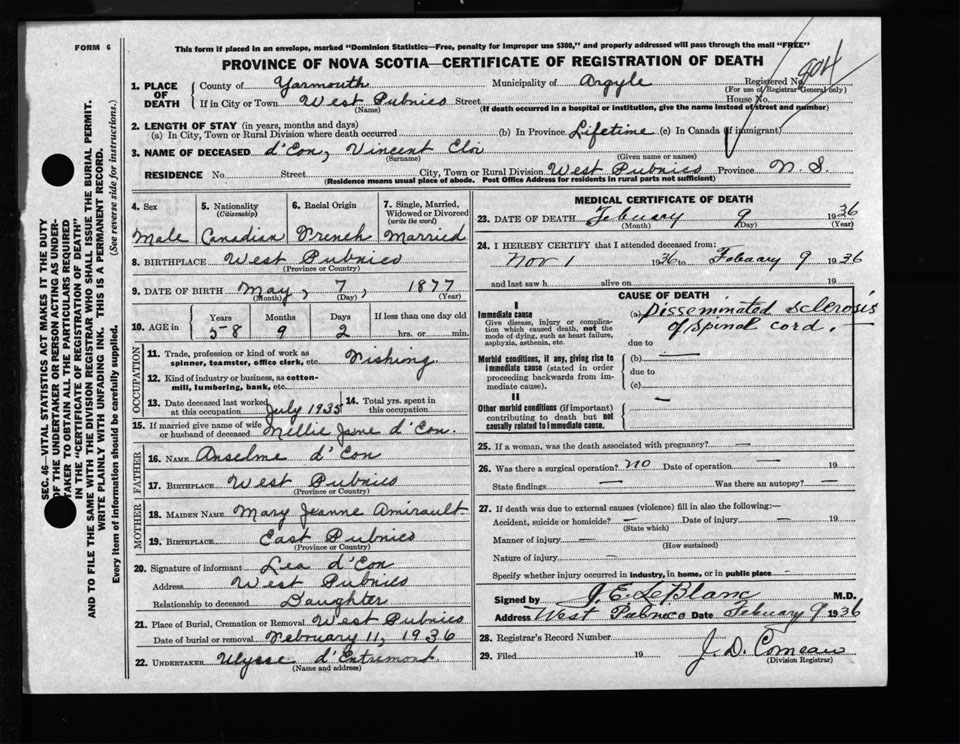 FORM 6
This form if placed in an envelope, marked "Dominion Statistics—Free, penalty for improper use $300," and properly addressed will pass through the mail "FREE"
PROVINCE OF NOVA SCOTIA—CERTIFICATE OF REGISTRATION OF DEATH
904
1. PLACE OF DEATH County of Yarmouth Municipality of Argyle Registered No. (For use of Registrar General only)
If in City or Town West Pubnico (Name) Street House No.
(If death occurred in a hospital or institution, give the name instead of street and number)
2. LENGTH OF STAY (in years, months and days)
(a) In City, Town or Rural Division where death occurred (b) In Province Lifetime (c) In Canada (if immigrant)
3. NAME OF DECEASED d'Eon, Vincent Eloi
(Surname) (Given name or names)
RESIDENCE No. Street City, Town or Rural Division West Pubnico Province N. S.
(Residence means usual place of abode. Post Office Address for residents in rural parts not sufficient)
4. Sex 5. Nationality (Citizenship) 6. Racial Origin 7. Single, Married, Widowed or Divorced (write the word)
Male Canadian French Married
8. BIRTHPLACE West Pubnico
(Province or Country)
9. DATE OF BIRTH May, 7, 1877
(Month) (Day) (Year)
10. AGE in Years Months Days If less than one day old
58 9 2 hrs. or min.
OCCUPATION
11. Trade, profession or kind of work as spinner, teamster, office clerk, etc. Fishing
12. Kind of industry or business, as cotton-mill, lumbering, bank, etc.
13. Date deceased last worked at this occupation July 1935 14. Total yrs. spent in this occupation
15. If married give name of wife or husband of deceased Millie Jane d'Eon.
FATHER
16. NAME Anselme d'Eon
17. BIRTHPLACE West Pubnico
(Province or Country)
MOTHER
18. MAIDEN NAME Mary Jeanne Amirault
19. BIRTHPLACE East Pubnico
(Province or Country)
20. Signature of informant Lea d'Eon
Address West Pubnico
Relationship to deceased Daughter
21. Place of Burial, Cremation or Removal West Pubnico
Date of burial or removal February 11, 1936
22. UNDERTAKER Ulysse d'Entremont
(Name and address)
MEDICAL CERTIFICATE OF DEATH
23. DATE OF DEATH Febuary 9 1936
(Month) (Day) (Year)
24. I HEREBY CERTIFY that I attended deceased from:
Nov 1 1936 to Febuary 9 1936
and last saw h alive on 19
CAUSE OF DEATH
I
Immediate cause
Give disease, injury or complication which caused death, not the mode of dying, such as heart failure, asphyxia, asthenia, etc.
(a) Disseminated sclerosis
of Spinal cord.
due to
Morbid conditions, if any, giving rise to immediate cause (stated in order proceeding backwards from immediate cause).
(b)
due to
(c)
II
Other morbid conditions (if important) contributing to death but not causally related to immediate cause.
25. If a woman, was the death associated with pregnancy?
26. Was there a surgical operation? no Date of operation 19
State findings Was there an autopsy?
27. If death was due to external causes (violence) fill in also the following:—
Accident, suicide or homicide? Date of injury 19
(State which)
Manner of injury
(How sustained)
Nature of injury
Specify whether injury occurred in industry, in home, or in public place
Signed by J. E. LeBlanc M.D.
Address West Pubnico Date Febuary 9 1936
28. Registrar's Record Number
29. Filed 19 J. D. Comeau
(Division Registrar)
SEC. 46—VITAL STATISTICS ACT MAKES IT THE DUTY
OF THE UNDERTAKER OR PERSON ACTING AS UNDER-
TAKER TO OBTAIN ALL THE PARTICULARS REQUIRED
IN THE "CERTIFICATE OF REGISTRATION OF DEATH"
AND TO FILE THE SAME WITH THE DIVISION REGISTRAR WHO SHALL ISSUE THE BURIAL PERMIT.
WRITE PLAINLY WITH UNFADING INK. THIS IS A PERMANENT RECORD.
Every item of information should be carefully supplied. (See reverse side for instructions.)